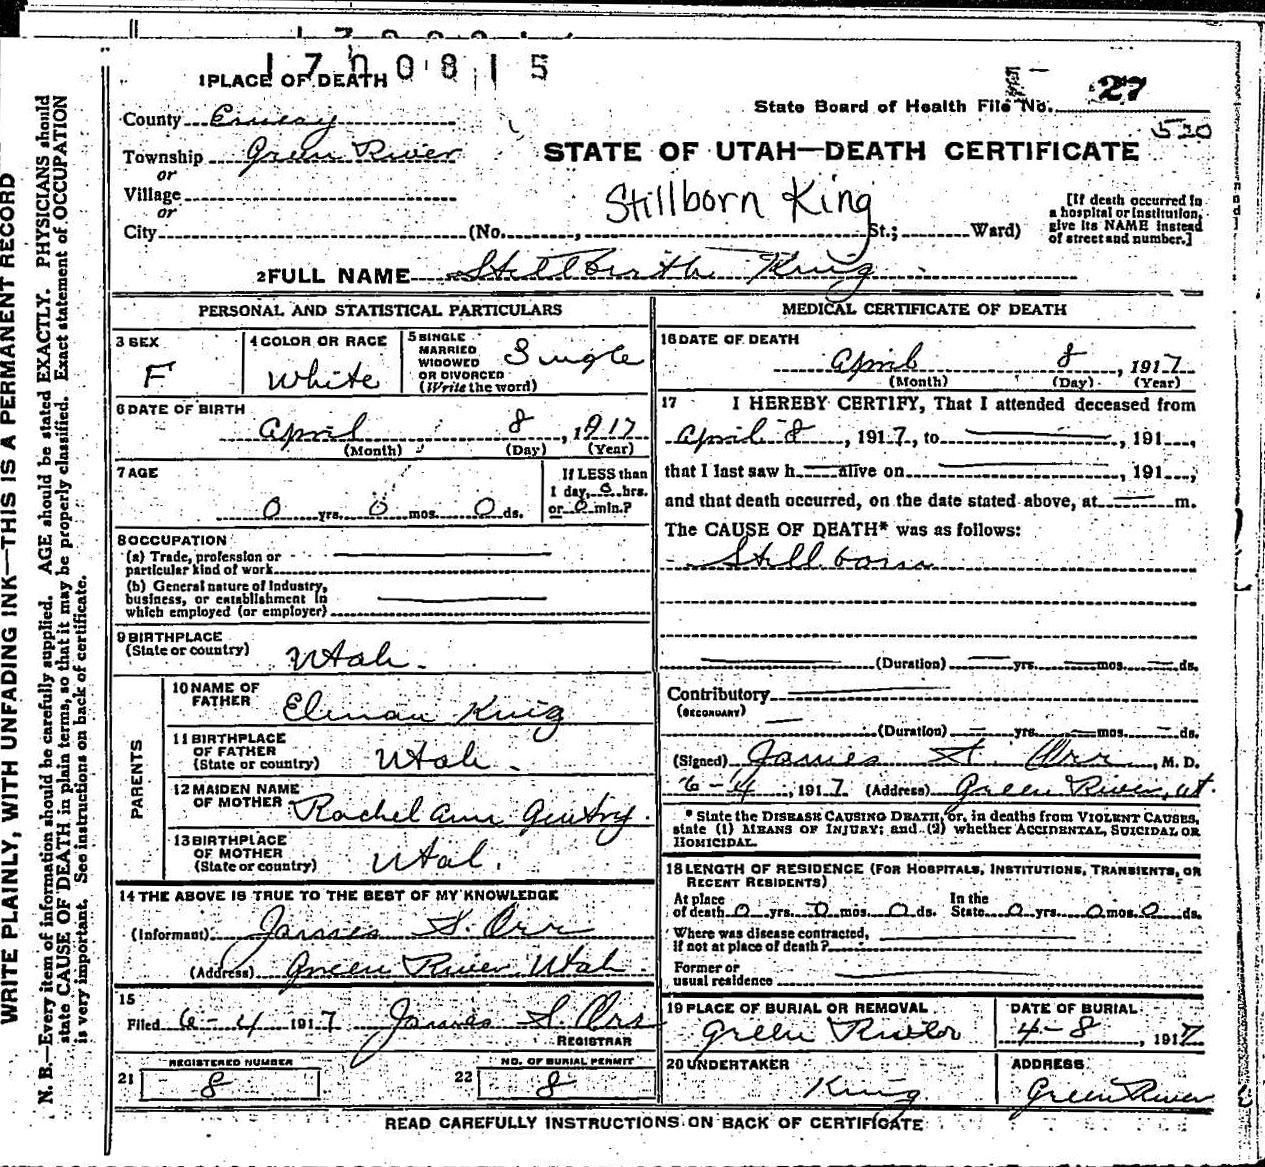 1700815
1 PLACE OF DEATH
State Board of Health File No. 27
520
County Emery
Township Green River
or
Village
or
City (No. , St.; Ward)
STATE OF UTAH—DEATH CERTIFICATE
Stillborn King
[If death occurred in
a hospital or institution,
give its NAME instead
of street and number.]
2 FULL NAME Stillbirth King
PERSONAL AND STATISTICAL PARTICULARS
3 SEX
F
4 COLOR OR RACE
White
5 SINGLE
MARRIED
WIDOWED
OR DIVORCED
(Write the word)
Single
6 DATE OF BIRTH
April 8, 1917
(Month) (Day) (Year)
7 AGE
0 yrs. 0 mos. 0 ds.
If LESS than
1 day, 0 hrs.
or 0 min.?
8 OCCUPATION
(a) Trade, profession or
particular kind of work
(b) General nature of industry,
business, or establishment in
which employed (or employer)
9 BIRTHPLACE
(State or country)
Utah.
PARENTS
10 NAME OF
FATHER
King
11 BIRTHPLACE
OF FATHER
(State or country)
Utah.
12 MAIDEN NAME
OF MOTHER
Rachel Ann Gentry.
13 BIRTHPLACE
OF MOTHER
(State or country)
Utah.
14 THE ABOVE IS TRUE TO THE BEST OF MY KNOWLEDGE
(Informant) James S. Orr
(Address) Green River Utah.
15
Filed 6-4 1917 James S. Orr
REGISTRAR
REGISTERED NUMBER
21 8
NO. OF BURIAL PERMIT
22 8
MEDICAL CERTIFICATE OF DEATH
16 DATE OF DEATH
April 8, 1917
(Month) (Day) (Year)
17 I HEREBY CERTIFY, That I attended deceased from
April 8, 1917, to , 191 ,
that I last saw h alive on , 191 ;
and that death occurred, on the date stated above, at m.
The CAUSE OF DEATH* was as follows:
Stillborn
(Duration) yrs. mos. ds.
Contributory
(SECONDARY)
(Duration) yrs. mos. ds.
(Signed) James S. Orr, M. D.
6-4, 1917. (Address) Green River, Ut.
* State the DISEASE CAUSING DEATH, or, in deaths from VIOLENT CAUSES,
state (1) MEANS OF INJURY; and (2) whether ACCIDENTAL, SUICIDAL OR
HOMICIDAL.
18 LENGTH OF RESIDENCE (FOR HOSPITALS, INSTITUTIONS, TRANSIENTS, OR
RECENT RESIDENTS)
At place
of death 0 yrs. 0 mos. 0 ds.
In the
State 0 yrs. 0 mos. 0 ds.
Where was disease contracted,
if not at place of death?
Former or
usual residence
19 PLACE OF BURIAL OR REMOVAL
Green River
DATE OF BURIAL
4-8, 1917
20 UNDERTAKER
King
ADDRESS
Green River
READ CAREFULLY INSTRUCTIONS ON BACK OF CERTIFICATE
WRITE PLAINLY, WITH UNFADING INK—THIS IS A PERMANENT RECORD
N. B.—Every item of information should be carefully supplied. AGE should be stated EXACTLY. PHYSICIANS should
state CAUSE OF DEATH in plain terms, so that it may be properly classified. Exact statement of OCCUPATION
is very important. See instructions on back of certificate.